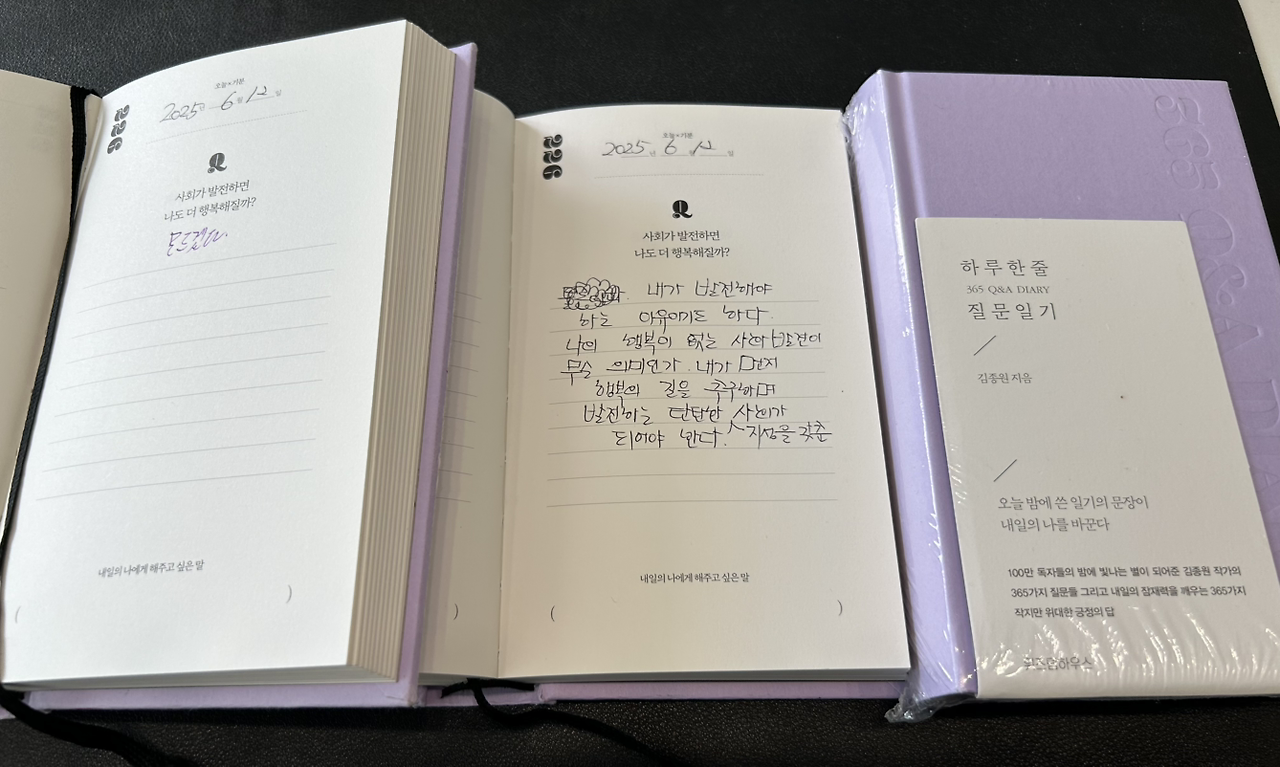 226
오늘×기분
2025년 6월 12일
Q
사회가 발전하면
나도 더 행복해질까?
모르겠다.
내일의 나에게 해주고 싶은 말
( )
)
226
오늘×기분
2025년 6월 12일
Q
사회가 발전하면
나도 더 행복해질까?
내가 발전해야
하는 이유이기도 하다.
나의 행복이 없는 사회 발전이
무슨 의미인가. 내가 먼저
행복의 길을 추구하며
발전하는 단단한 사회가
되어야 한다. ^지성을 갖춘
내일의 나에게 해주고 싶은 말
( )
365 Q&A
하루 한 줄
365 Q&A DIARY
질문 일기
김종원 지음
오늘 밤에 쓴 일기의 문장이
내일의 나를 바꾼다
100만 독자들의 밤에 빛나는 별이 되어준 김종원 작가의
365가지 질문들 그리고 내일의 잠재력을 깨우는 365가지
작지만 위대한 긍정의 답
위즈덤하우스